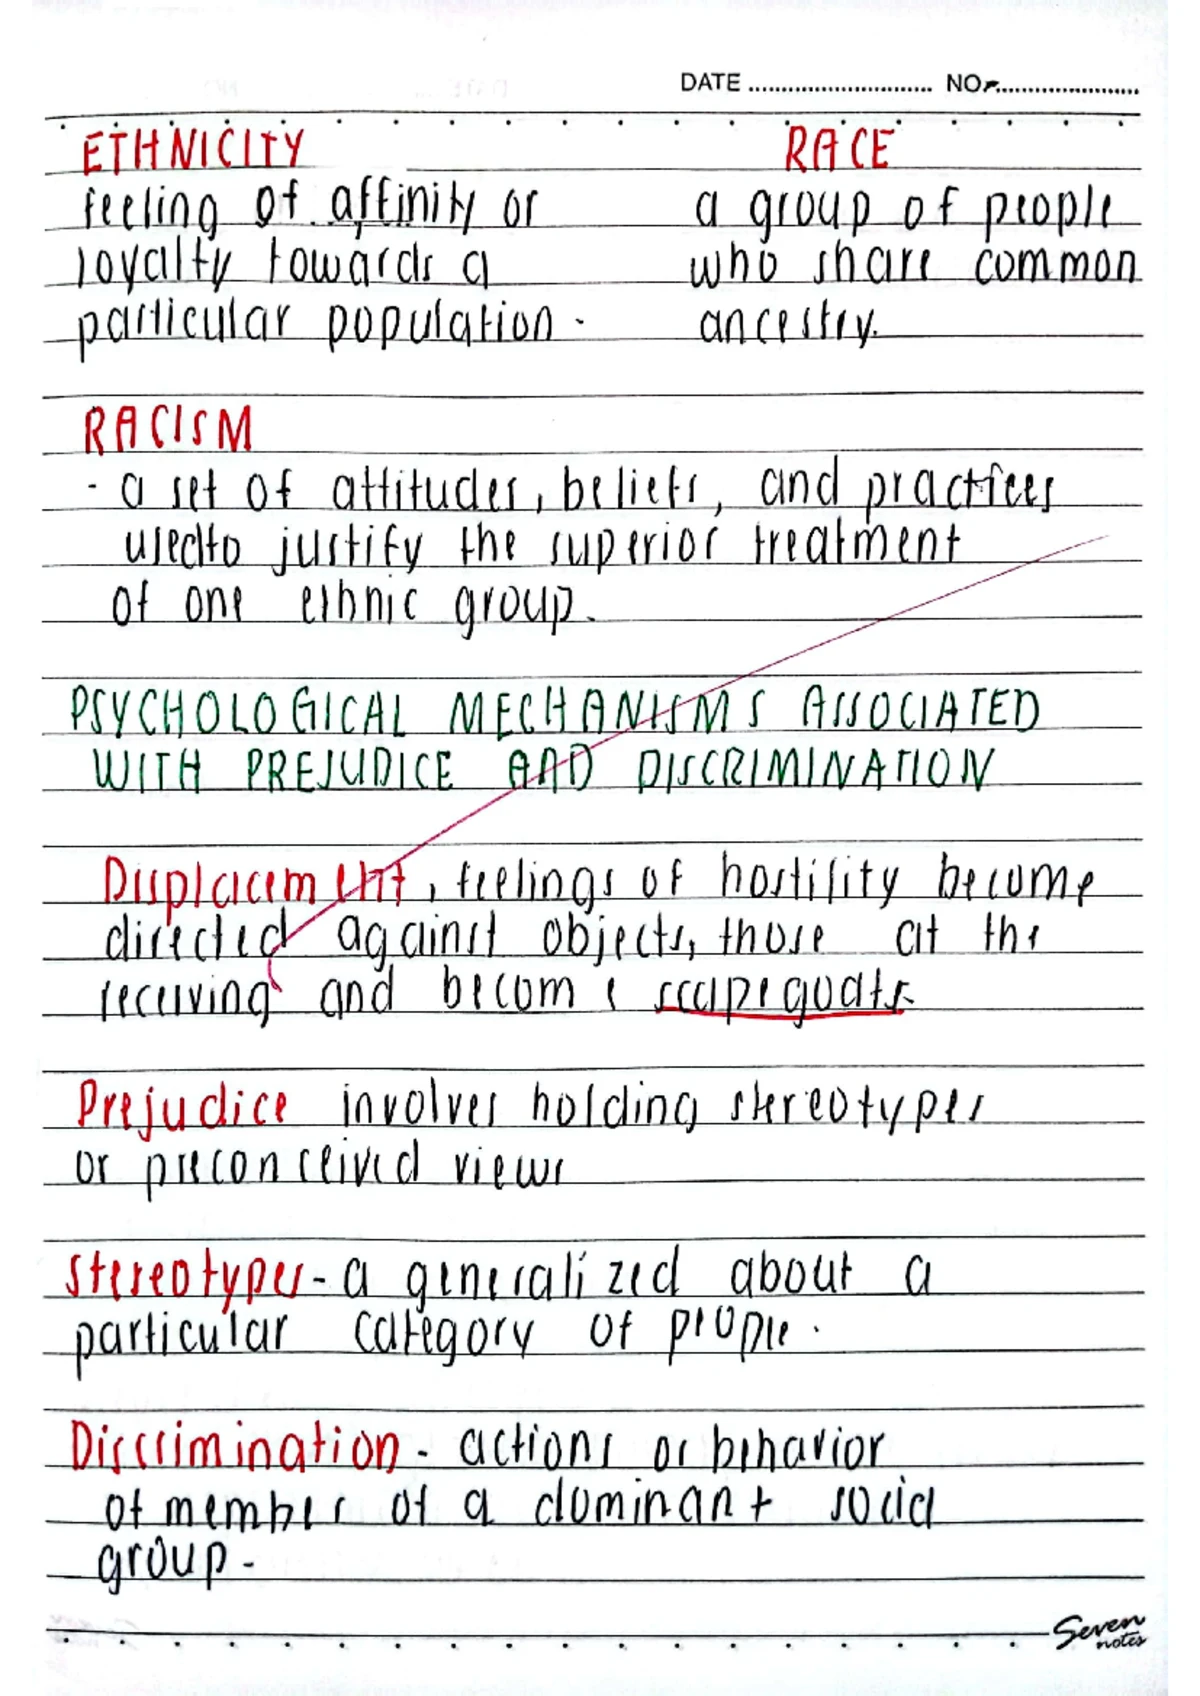 DATE ............................ NO. ......................
ETHNICITY RACE
feeling of affinity or a group of people
loyalty towards a who share common
particular population. ancestry.
RACISM
- a set of attitudes, beliefs, and practices
used to justify the superior treatment
of one ethnic group.
PSYCHOLOGICAL MECHANISMS ASSOCIATED
WITH PREJUDICE AND DISCRIMINATION
Displacement, feelings of hostility become
directed against objects, those at the
receiving and become scapegoats.
Prejudice involves holding stereotypes
or preconceived views
Stereotypes - a generalized about a
particular category of people.
Discrimination - actions or behavior
of member of a dominant social
group.
Seven
notes